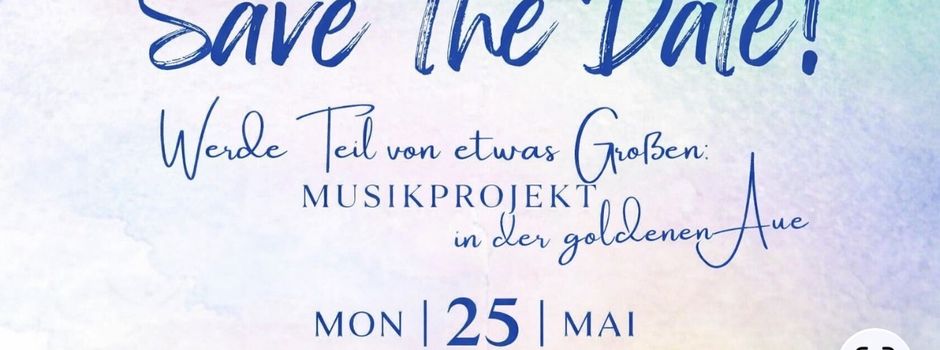 Save The Date!
Werde Teil von etwas Großen:
MUSIKPROJEKT
in der goldenen Aue
MON | 25 | MAI